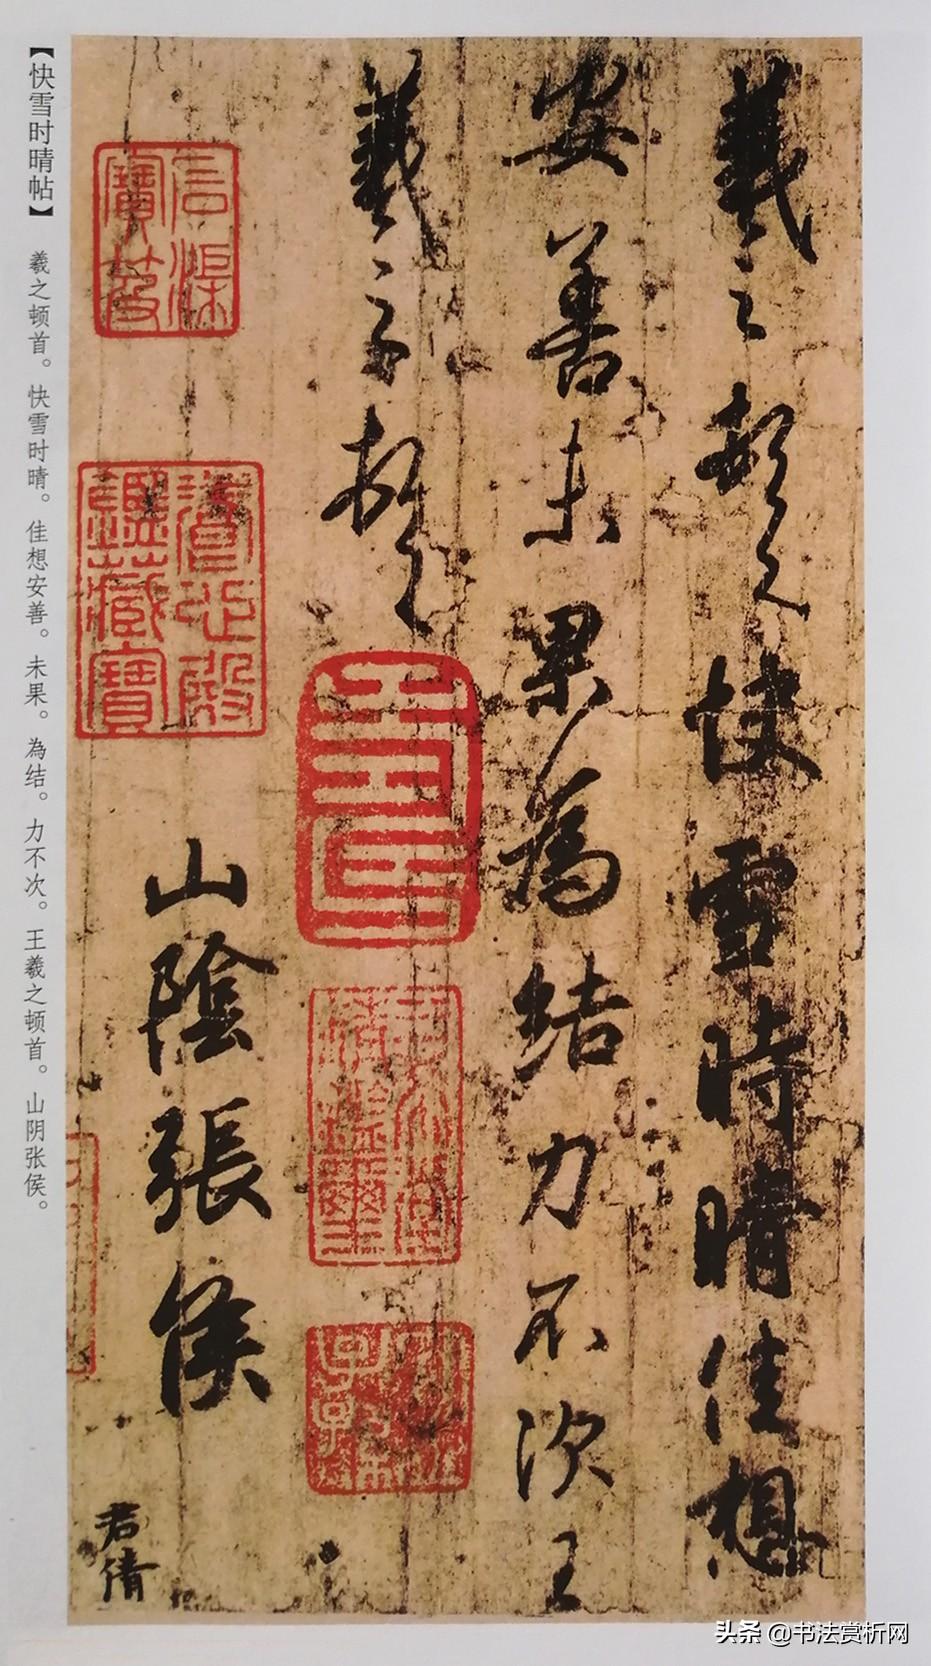 【快雪时晴帖】
羲之顿首。快雪时晴。佳想安善。未果。為结。力不次。王羲之顿首。山阴张侯。
羲之頓首快雪時晴佳想
安善未果為結力不次王
羲之頓首
山陰張侯
君倩
頭条 @书法赏析网